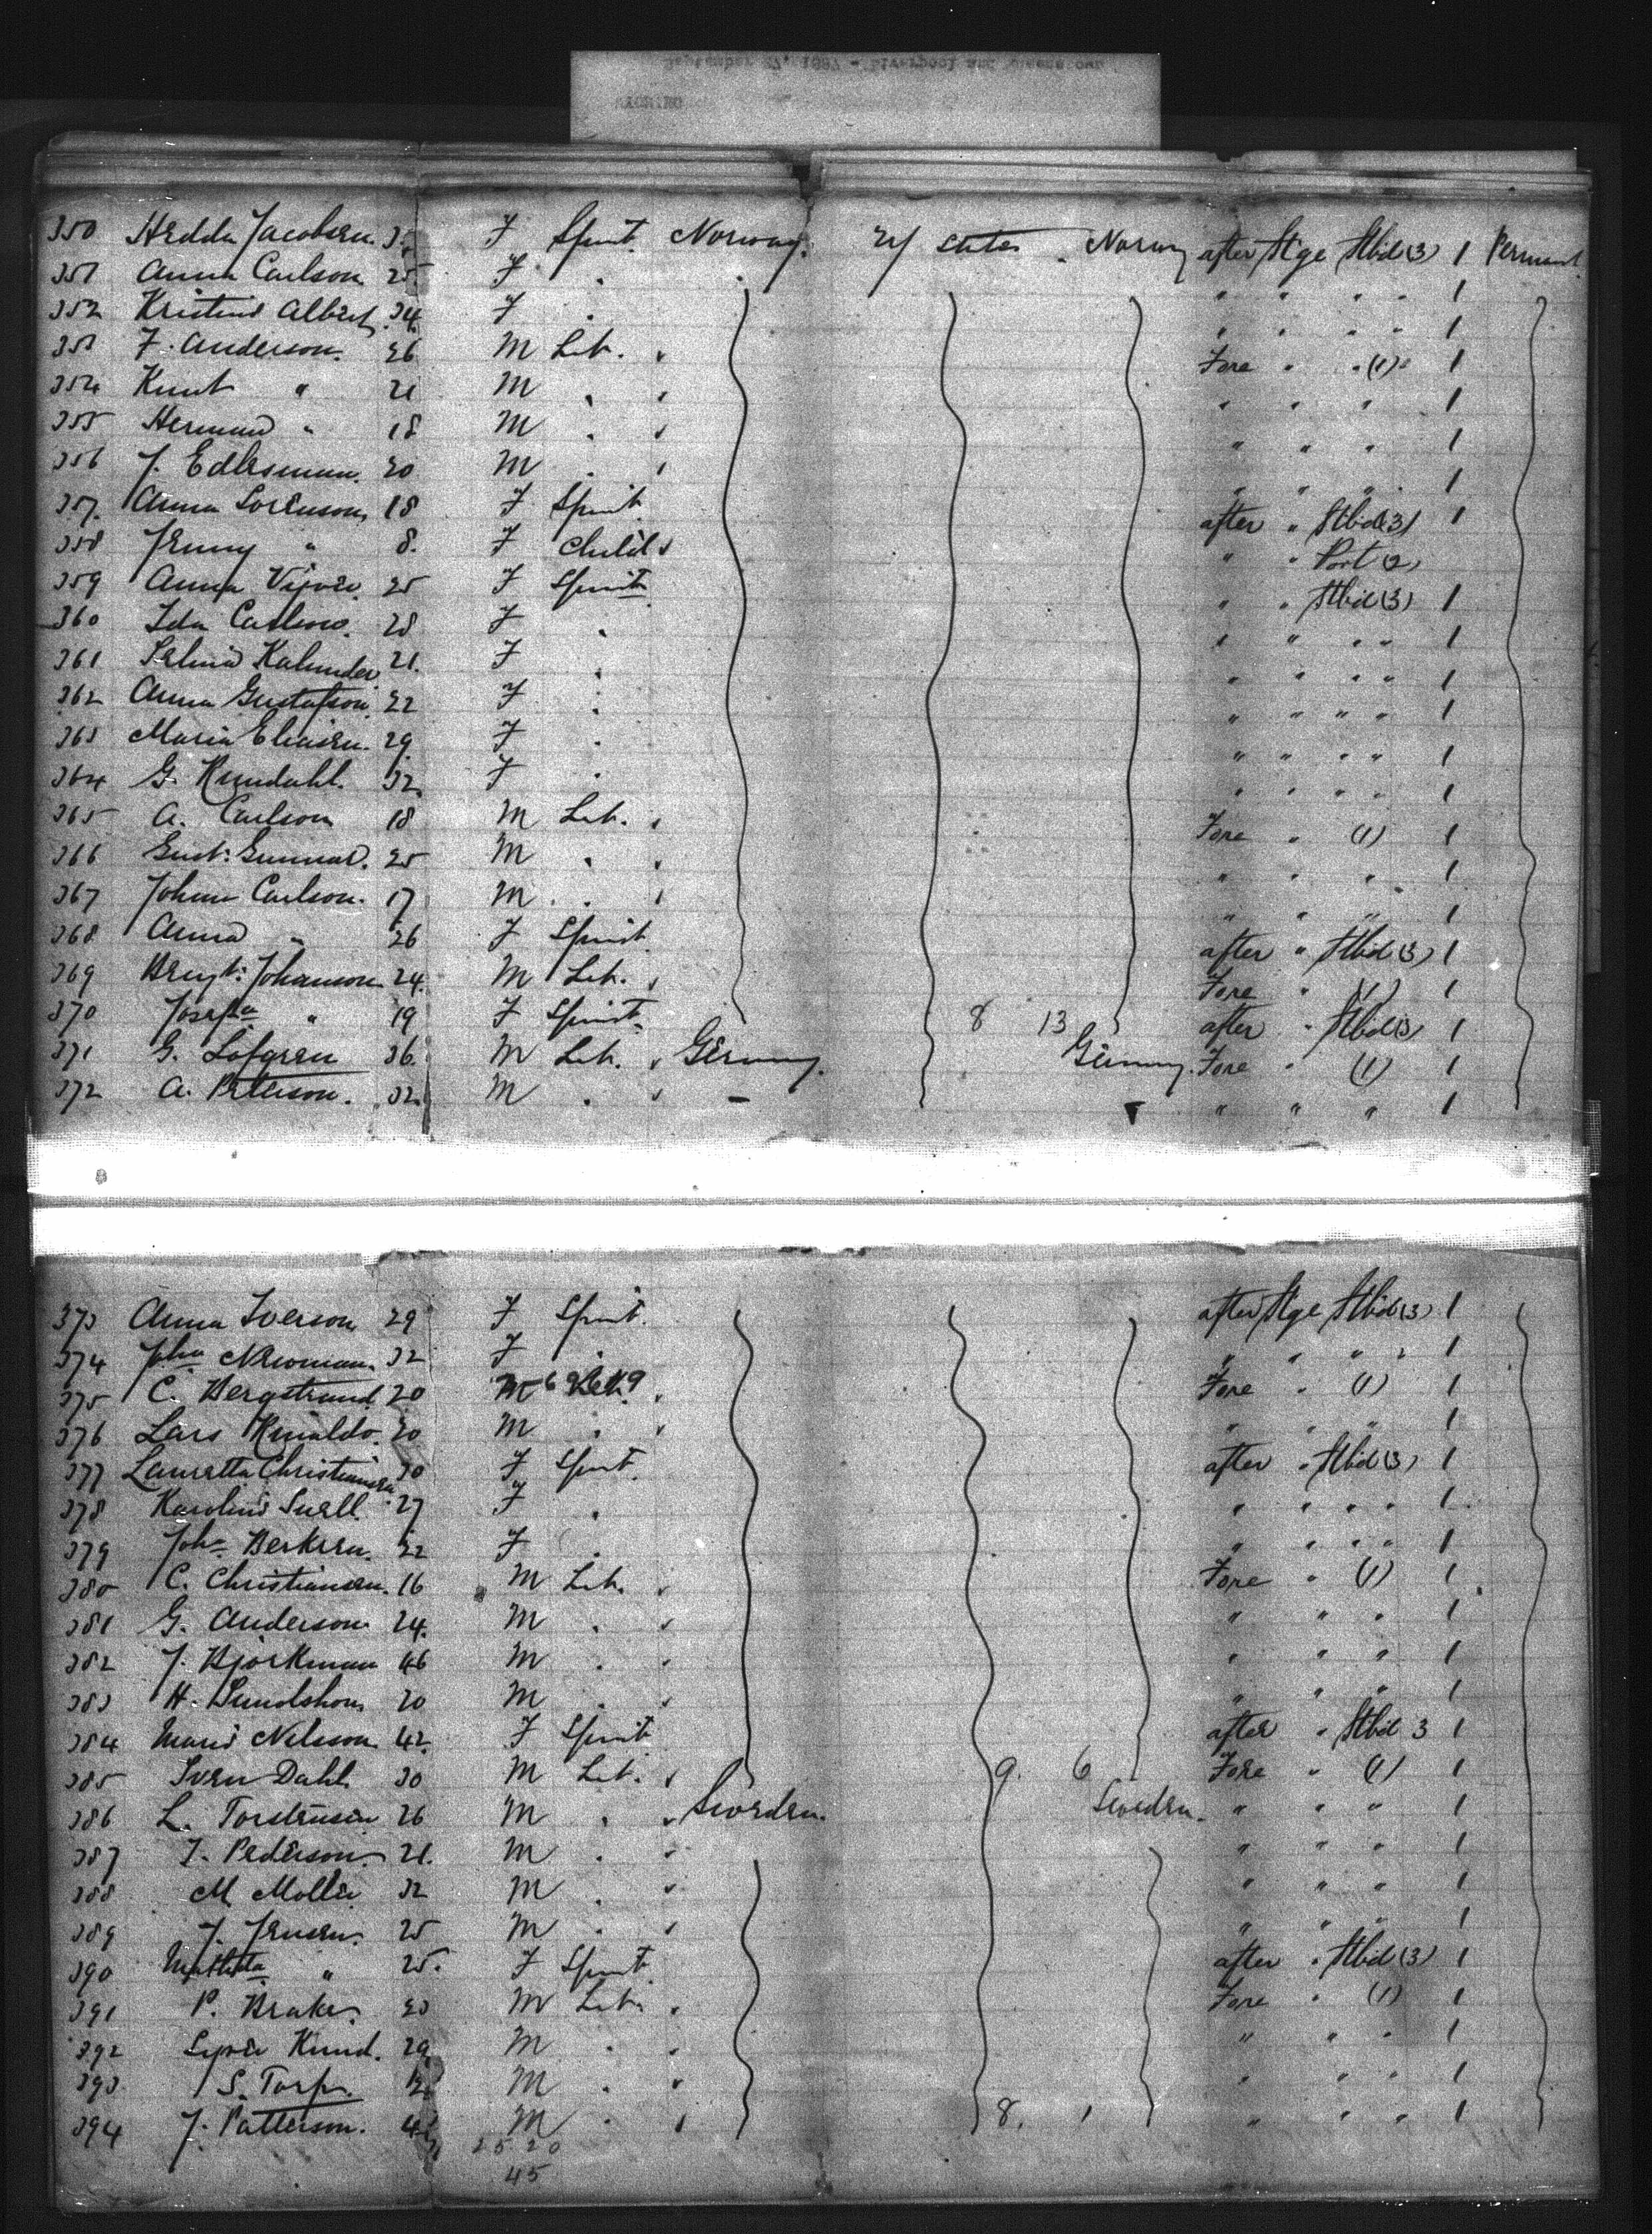 350 Hedda Jacobsen 3 F Spinst. Norway. U/ States Norway after St'ge Stbd (3) 1 Permant.
351 Anna Carlson 25 F " " " " " 1
352 Kristine Albert 24 F " " " " " 1
353 F. Anderson. 26 M Lab. " Fore " " (1) " 1
354 Knut " 21 M " " " " " 1
355 Herman " 18 M " " " " " 1
356 J. 20 M " " " " " 1
357. Anna Sorenson, 18 F Spinst after " Stbd (3) 1
358 Jenny " 8. F Child " " " Port (2)
359 Anna 25 F Spinst " " Stbd (3) 1
360 Ida Carlson. 28 F " " " " " 1
361 Selma 21. F " " " " " 1
362 Anna Gustafson 22 F " " " " " 1
363 Maria Eliasen. 29 F " " " " " 1
364 G. 32. F " " " " " 1
365 A. Carlson 18 M Lab. " Fore " (1) 1
366 Gust. Gunnar. 25 M " " " " " 1
367 Johan Carlson. 17 M " " " " " 1
368 Anna " 26 F Spinst. after " Stbd (3) 1
369 Bengt: Johanson 24. M Lab. " Fore " (1) 1
370 Josefa " 19 F Spinst. 8 13 after " Stbd (3) 1
371 G. Lofgren 36. M Lab. " Germny. Germny. Fore " (1) 1
372 A. Peterson. 32. M " " " " " 1
373 Anna Iverson 29 F Spinst. after St'ge Stbd (3) 1
374 Joha Newman. 32 F " " " " 1
375 C. Bergstrand 20 M Lab. " Fore " (1) 1
376 Lars Rinaldo. 20 M " " " " " 1
377 Lauretta Christiansen 30 F Spinst. after " Stbd (3) 1
378 Karolina Snell 27 F " " " " " 1
379 Joha 22 F " " " " " 1
380 C. Christiansen. 16 M Lab. " Fore " (1) 1
381 G. Anderson 24. M " " " " " 1
382 J. Bjorkman 46 M " " " " " 1
383 H. 20 M " " " " " 1
384 Maria Nelsson 42. F Spinst after " Stbd 3 1
385 Sven Dahl 30 M Lab. " 9. 6 Fore " (1) 1
386 L. Torstensen 26 M " " Sweden. Sweden. " " " 1
387 F. Pederson 21. M " " " " " 1
388 M Moller 32 M " " " " " 1
389 J. Jensen. 25 M " " " " " 1
390 " 25. F Spinst after " Stbd (3) 1
391 P. 20 M Lab. " Fore " (1) 1
392 Knud. 29 M " " " " " 1
393 S. Torp. M " " " " " 1
394 J. Patterson. M " " 8. 1 " " " 1
25 20
45